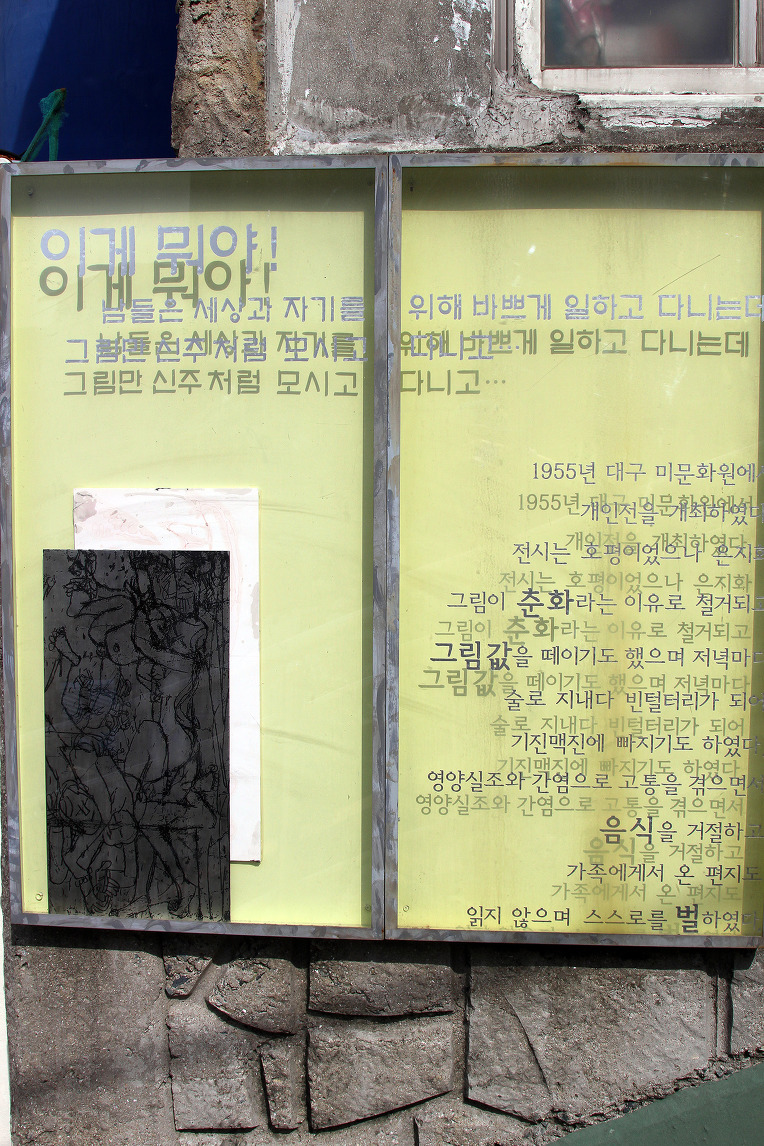 이게 뭐야!
남들은 세상과 자기를 위해 바쁘게 일하고 다니는데
그림만 신주처럼 모시고 다니고…
1955년 대구 미문화원에서
개인전을 개최하였다
전시는 호평이었으나 은지화
그림이 춘화라는 이유로 철거되고
그림값을 떼이기도 했으며 저녁마다
술로 지내다 빈털터리가 되어
기진맥진에 빠지기도 하였다
영양실조와 간염으로 고통을 겪으면서
음식을 거절하고
가족에게서 온 편지도
읽지 않으며 스스로를 벌하였다